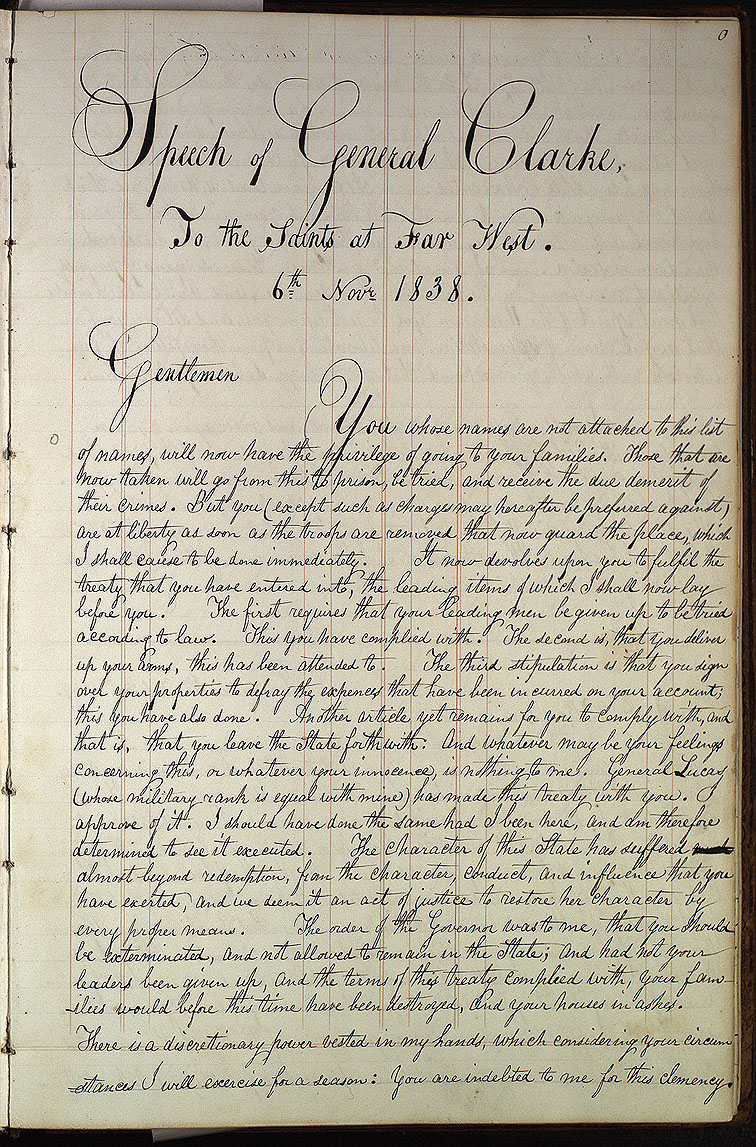 0
Speech of General Clarke,
To the Saints at Far West.
6th Novr 1838.
Gentlemen
You whose names are not attached to this list
0
of names, will now have the privilege of going to your families. Those that are
now taken will go from this to prison, be tried, and receive the due demerit of
their crimes. But you (except such as charges may hereafter be preferred against)
are at liberty as soon as the troops are removed that now guard the place, which
I shall cause to be done immediately. It now devolves upon you to fulfil the
treaty that you have entered into, the leading items of which I shall now lay
before you. The first requires that your leading men be given up to be tried
according to law. This you have complied with. The second is, that you deliver
up your arms, this has been attended to. The third stipulation is that you sign
over your properties to defray the expences that have been incurred on your account;
this you have also done. Another article yet remains for you to comply with, and
that is, that you leave the State forthwith: And whatever may be your feelings
concerning this, or whatever your innocence, is nothing to me. General Lucas
(whose military rank is equal with mine) has made this treaty with you. I
approve of it. I should have done the same had I been here, and am therefore
determined to see it executed. The character of this State has suffered
almost beyond redemption, from the character, conduct, and influence that you
have exerted, and we deem it an act of justice to restore her character by
every proper means. The order of the Governor was to me, that you should
be exterminated, and not allowed to remain in the State; and had not your
leaders been given up, and the terms of this treaty complied with, your fam-
-ilies would before this time have been destroyed, and your houses in ashes.
There is a discretionary power vested in my hands, which considering your circum
-stances I will exercise for a season: You are indebted to me for this clemency.